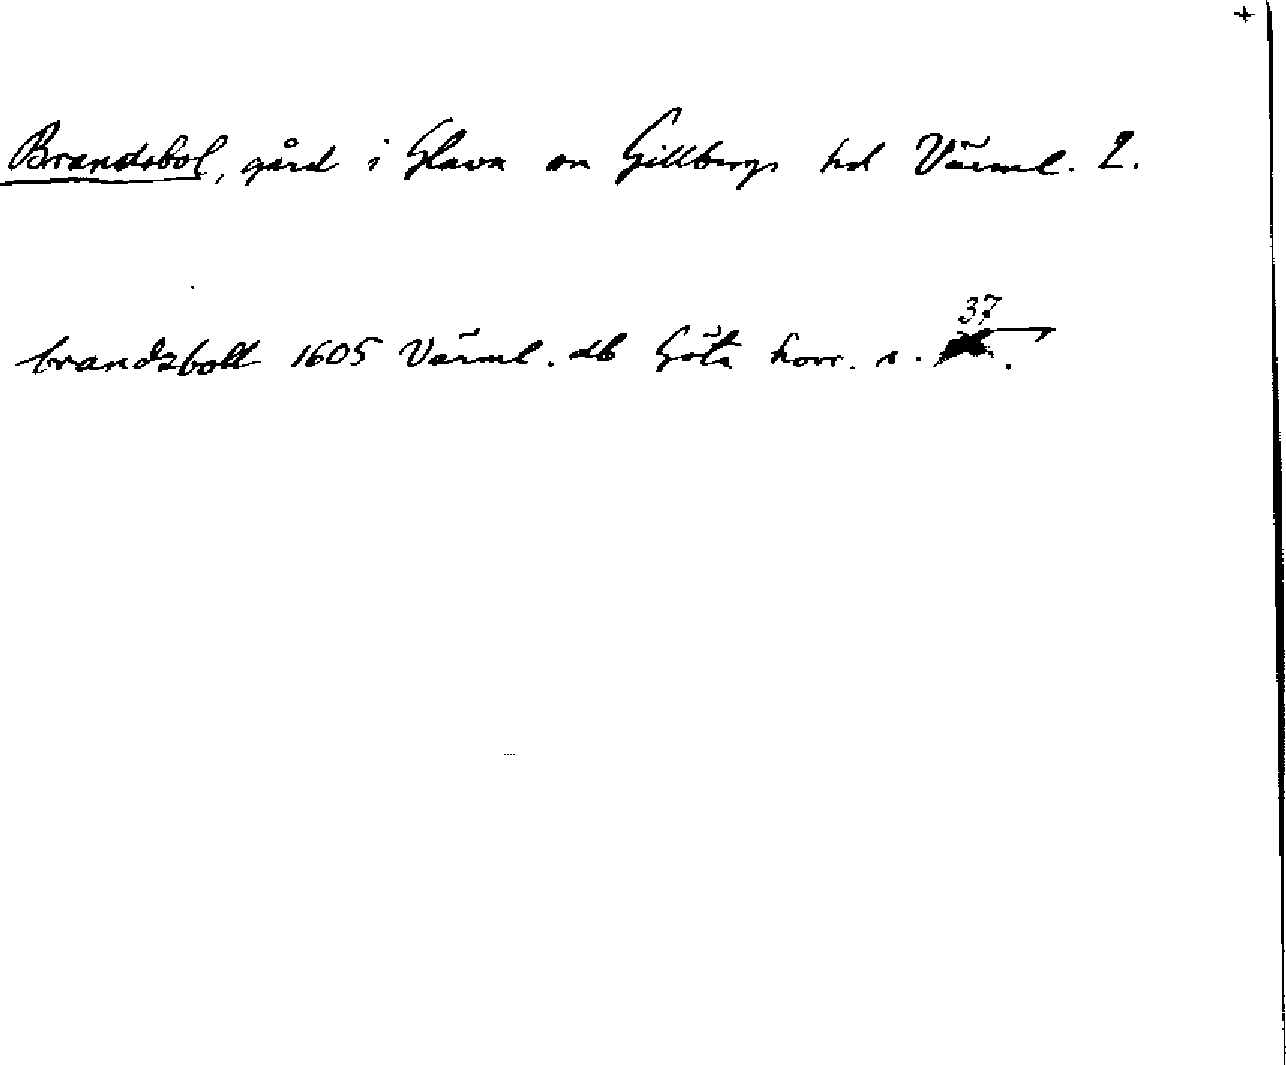 +
Brandsbol, gård i Glava sn Gillbergs hd Värml. L.
brandzboll 1605 Värml. db Göta hovr. s. 37.